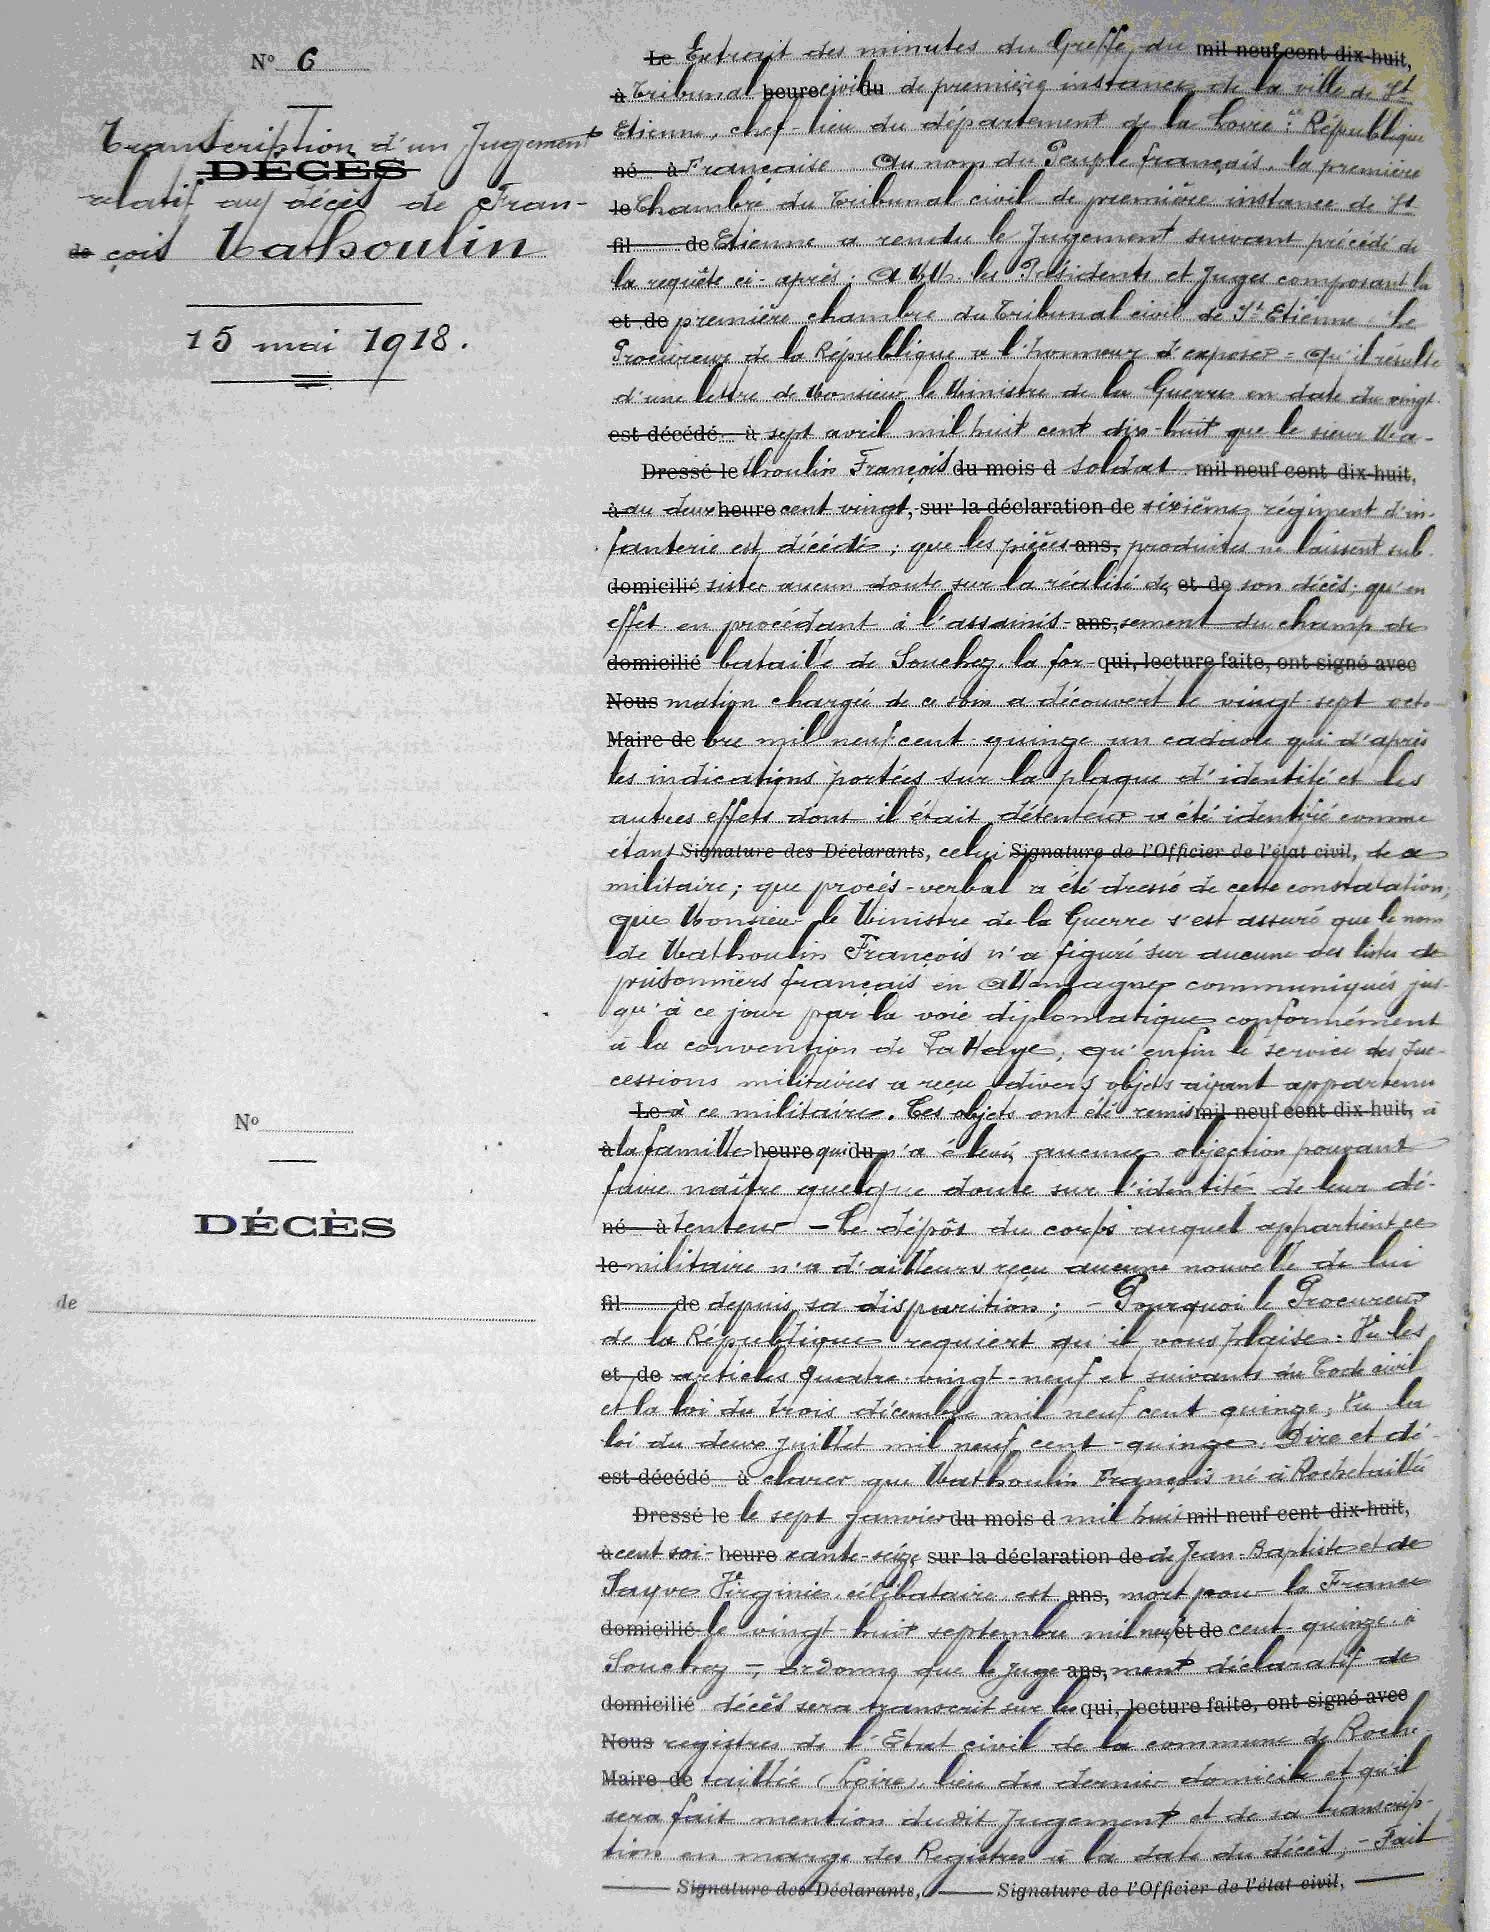 N° 6
Transcription d'un Jugement
DÉCÈS
relatif au décès de Fran-
de çois Mathoulin
15 mai 1918.
Le Extrait des minutes du Greffe du mil neuf cent dix-huit,
à Tribunal heure civil du de première instance de la ville de St
Etienne, chef-lieu du département de la Loire : République
né à Française Au nom du Peuple français, la première
le Chambre du Tribunal civil de première instance de St
fil de Etienne a rendu le Jugement suivant précédé de
la requête ci-après : A MM. les Présidents et Juges composant la
et de première chambre du Tribunal civil de St Etienne Le
Procureur de la République a l'honneur d'exposer = Qu'il résulte
d'une lettre de Monsieur le Ministre de la Guerre en date du vingt
est décédé à sept avril mil huit cent dix-huit que le sieur Ma-
Dressé le thoulin François du mois d soldat mil neuf cent dix-huit,
à au deux heure cent vingt, sur la déclaration de sixième régiment d'in-
fanterie est décédé ; que les pièces ans, produites ne laissent sub-
domicilié sister aucun doute sur la réalité de et de son décès ; qu'en
effet en procédant à l'assainis- ans, sement du champ de
domicilié bataille de Souchez la for- qui, lecture faite, ont signé avec
Nous mation chargée de ce soin a découvert le vingt-sept octo-
Maire de bre mil neuf cent quinze un cadavre qui d'après
les indications portées sur la plaque d'identité et les
autres effets dont il était détenteur a été identifié comme
étant Signature des Déclarants, celui Signature de l'Officier de l'état civil, de ce
militaire ; que procès-verbal a été dressé de cette constatation ;
que Monsieur le Ministre de la Guerre s'est assuré que le nom
de Mathoulin François n'a figuré sur aucune des listes de
prisonniers français en Allemagne communiqués jus-
qu'à ce jour par la voie diplomatique conformément
à la convention de La Haye ; qu'enfin le service des suc-
cessions militaires a reçu divers objets ayant appartenu
Le à ce militaire. Ces objets ont été remis mil neuf cent dix-huit, à
à la famille heure qui du n'a élevé aucune objection pouvant
faire naître quelque doute sur l'identité de leur dé-
né à tenteur – Le dépôt du corps auquel appartient ce
le militaire n'a d'ailleurs reçu aucune nouvelle de lui
fil de depuis sa disparition ; – Pourquoi le Procureur
de la République requiert qu'il vous plaise : Vu les
et de articles quatre-vingt-neuf et suivants du Code civil
et la loi du trois décembre mil neuf cent quinze ; Vu la
loi du deux juillet mil neuf cent quinze : Dire et dé-
est décédé à clarer que Mathoulin François né à Rochetaillée
Dressé le le sept janvier du mois d mil huit mil neuf cent dix-huit,
à cent soi- heure xante-seize sur la déclaration de de Jean-Baptiste et de
Sayve Virginie célibataire est ans, mort pour la France
domicilié le vingt-huit septembre mil neuf et de cent quinze à
Souchez –, ordonne que le juge- ans, ment déclaratif de
domicilié décès sera transcrit sur les qui, lecture faite, ont signé avec
Nous registres de l'Etat civil de la commune de Roche
Maire de taillée (Loire) lieu du dernier domicile et qu'il
sera fait mention dudit Jugement et de sa transcrip-
tion en marge des Registres à la date du décès ; – Fait
Signature des Déclarants, Signature de l'Officier de l'état civil,
N°
DÉCÈS
de